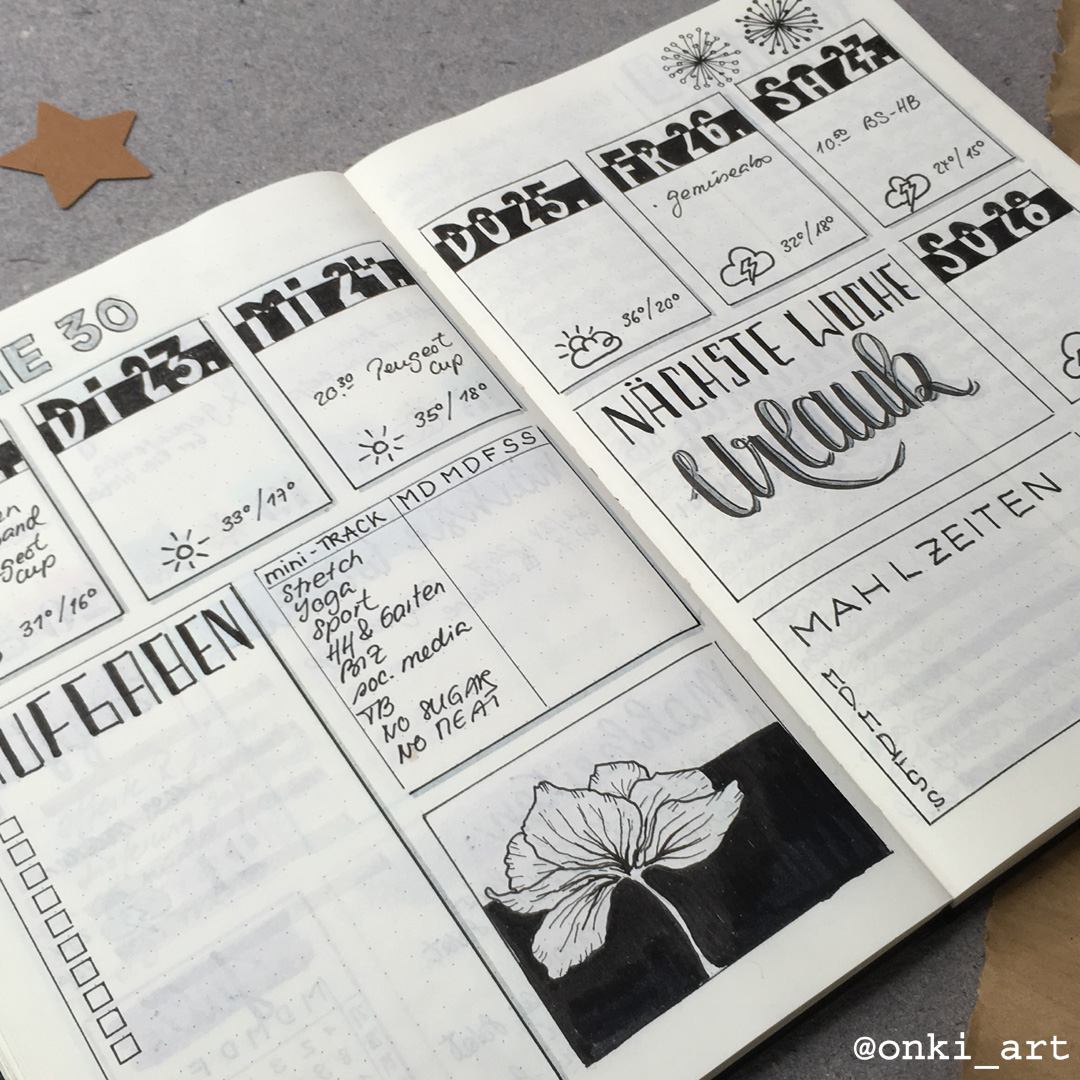 E 30
en
and
geot
cup
31°/16°
Di 23.
33°/17°
Mi 24.
20.30 Peugeot
cup
35°/18°
AUFGABEN
mini-TRACK M D M D F S S
Stretch
Yoga
Sport
HH & Garten
BIZ
soc. media
TB
NO SUGAR
NO MEAT
DO 25.
36°/20°
FR 26.
· gemüseabo
32°/18°
SA 27.
10.00 BS-HB
27°/15°
SO 28
NÄCHSTE WOCHE
Urlaub
MAHLZEITEN
M
D
M
D
F
S
S
@onki_art